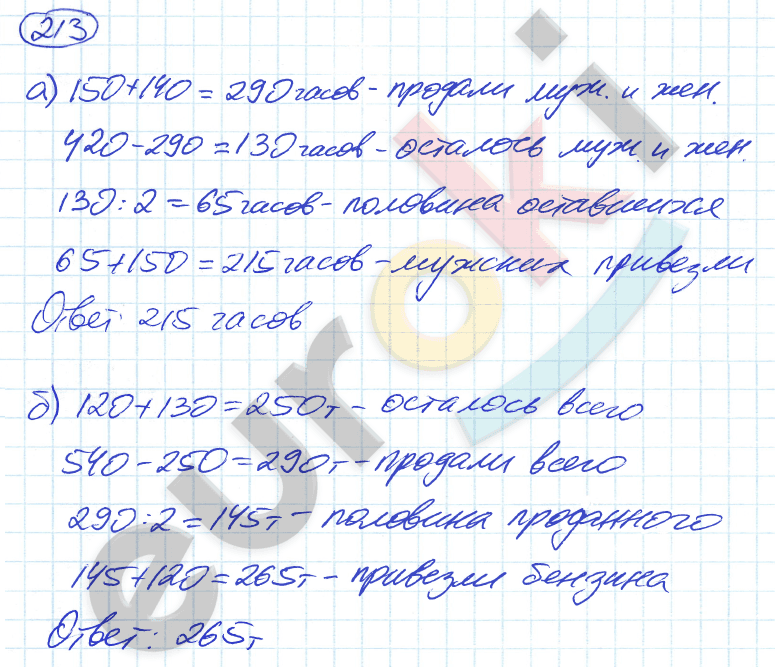 213
а) 150+140=290 часов - продали муж. и жен.
420-290=130 часов - осталось муж. и жен.
130:2=65 часов - половина оставшихся
65+150=215 часов - мужских привезли
Ответ: 215 часов
б) 120+130=250т - осталось всего
540-250=290т - продали всего
290:2=145т - половина проданного
145+120=265т - привезли бензина
Ответ: 265т
euroki